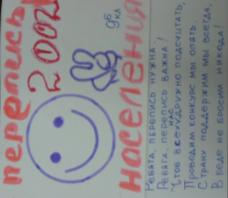 перепись
2002
9б
кл
населения
Ребята, перепись нужна!
Ребята, перепись важна!
Чтоб всех нас дружно подсчитать,
Проводим конкурс мы опять.
Страну поддержим мы всегда,
В беде не бросим никогда!